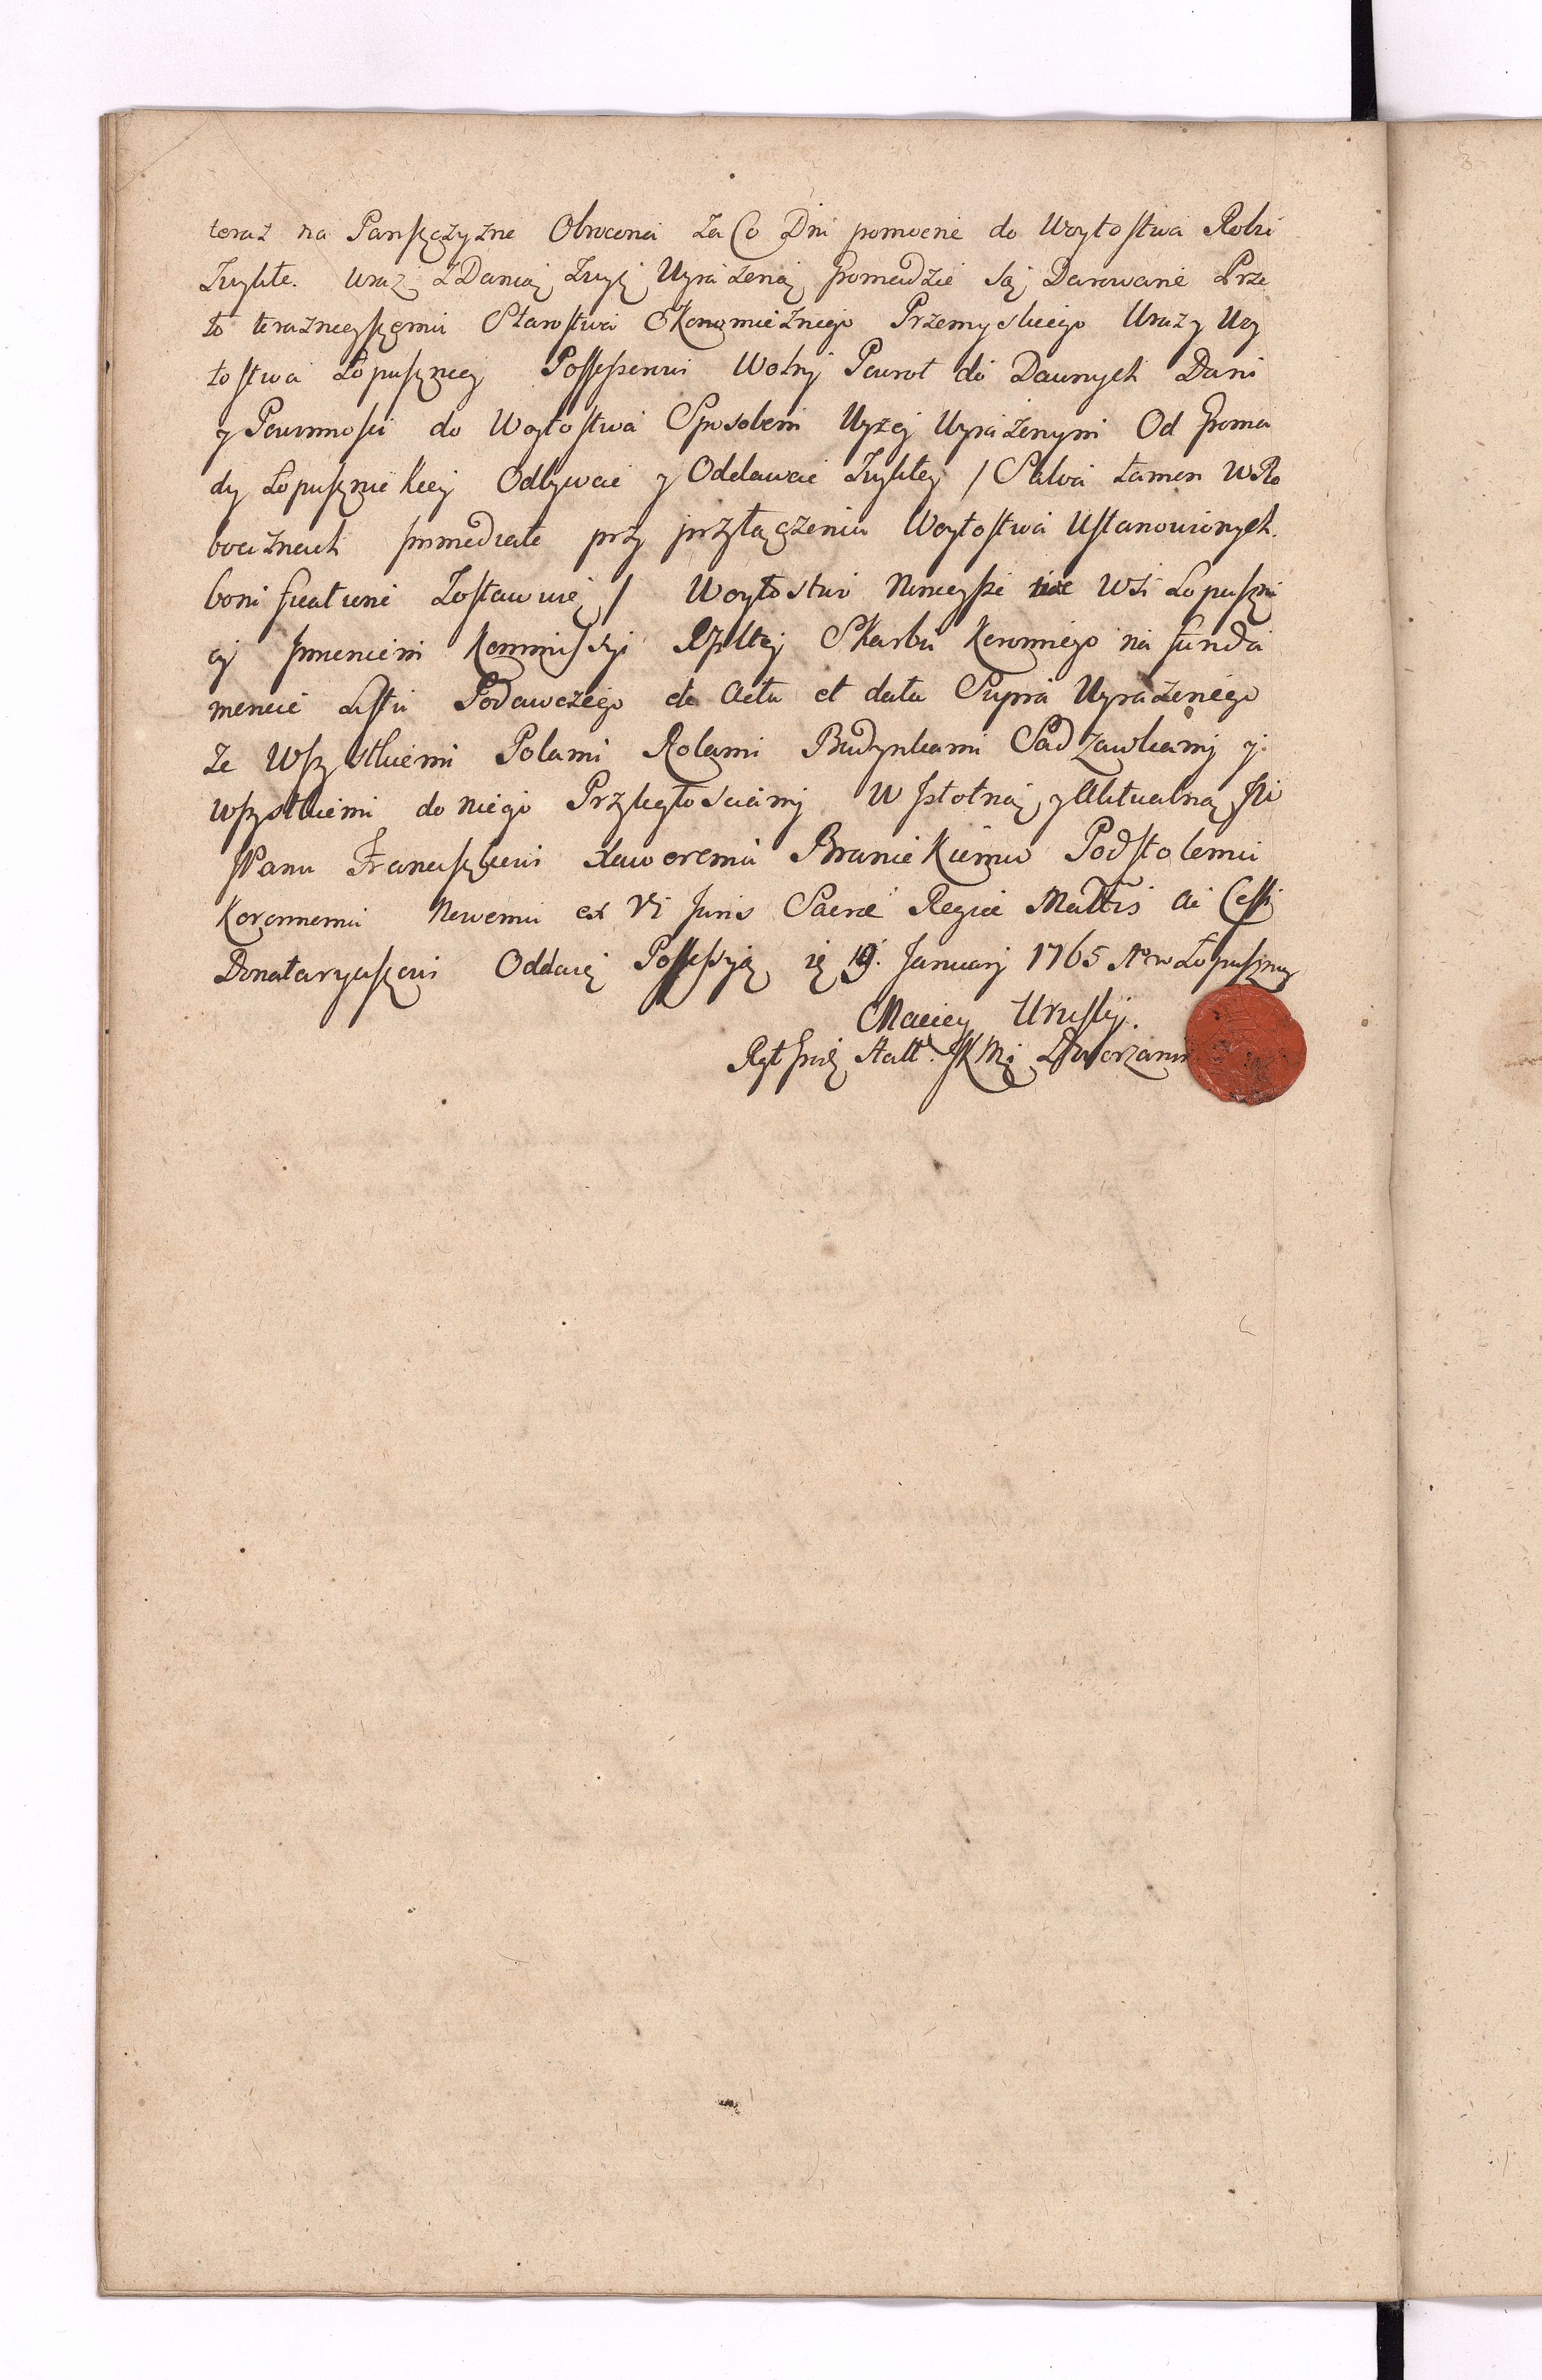 teraz na Panszczyzne Obrocona za Co Dni pomocne do Woytostwa Robic
Zwykłe. wraz z Danią zwyż Wyrażoną Gromadzie są Darowane Prze
to teraznieyszemu Starostwa Ekonomicznego Przemyskiego Wraz y Woy
tostwa Łopuszney Possessorowi Wolny Powrot do Dawnych Dani
y Powinnosci do Woytostwa Sposobem Wyżey Wyrażonym Od Groma
dy Łopusznickiey Odbywac y Oddawac Zwykłey / Salva tamen w Ro
bociznach immediate przy przyłączeniu Woytostwa Ustanowionych
bonificatione Zostawuię / Woytostwo Ninieysze we Wsi Łopuszn
ey Imieniem Kommissyi Rzpltey Skarbu Koronnego na funda
mencie Listu Podawczego de Actu et datu Supra Wyrażonego
ze Wszystkiemi Polami Rolami Budynkami Sadzawkami y
wszystkiemi do niego Przyległosciami W Istotną y Aktualną JW
JPanu Franciszkowi Xaweremu Branickiemu Podstolemu
Koronnemu Nowemu ex Vi Juris Sacræ Regiæ Mattis ac Cessi
Donataryuszowi Oddaię Possessyą 19. January 1765 A° w Łopuszney
Maciey Uruski.
JKMci Dworzanin